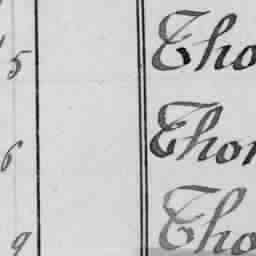 5 Tho
6 Thom
9 Tho